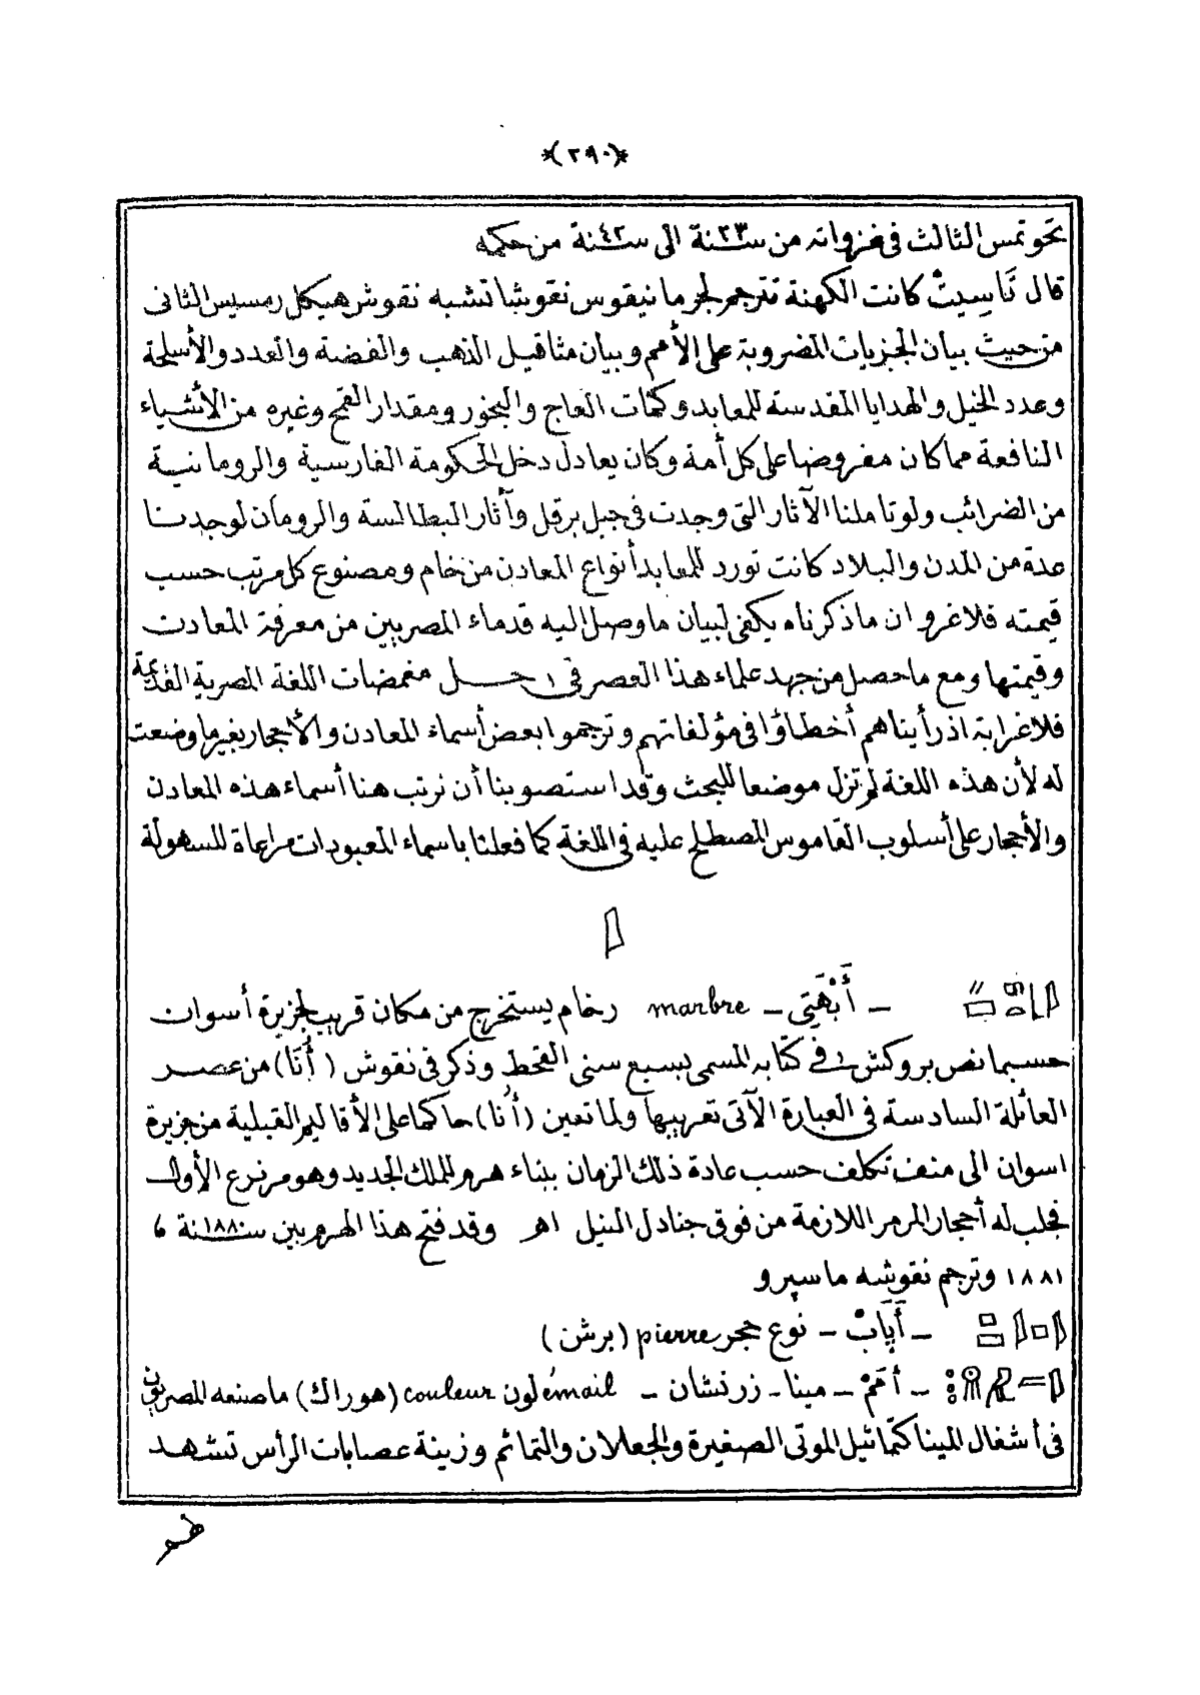 *(٢٩٠)*
تحوتمس الثالث في غزواته من سنة ٢٣ الى سنة ٤٢ من حكمه
قال تَاسِيتْ كانت الكهنة تترجم لجرمانيقوس نقوشا تشبه نقوش هيكل رمسيس الثانى
من حيث بيان الجزيات المضروبة على الأمم وبيان مثاقيل الذهب والفضة والعدد والأسلحة
وعدد الخيل والهدايا المقدسة للمعابد وكميات العاج والبخور ومقدار القمح وغيره من الأشياء
النافعة مما كان مفروضا على كل أمة وكان يعادل دخل الحكومة الفارسية والرومانية
من الضرائب ولو تاملنا الآثار التى وجدت فى جبل برقل وآثار البطالسة والرومان لوجدنا
عدة من المدن والبلاد كانت تورد للمعابد أنواع المعادن من خام ومصنوع كل مرتب حسب
قيمته فلا غرو ان ما ذكرناه يكفى لبيان ما وصل اليه قدماء المصريين من معرفة المعادن
وقيمتها ومع ما حصل من جهد علماء هذا العصر فى حل مغمضات اللغة المصرية القديمة
فلا غرابة اذ رأيناهم أخطاؤا فى مؤلفاتهم وترجموا بعض أسماء المعادن والأحجار بغير ما وضعت
له لأن هذه اللغة لم تزل موضعا للبحث وقد استصوبنا أن نرتب هنا أسماء هذه المعادن
والأحجار على أسلوب القاموس المصطلح عليه فى اللغة كما فعلنا باسماء المعبودات مراعاة للسهولة
𓇋
— أَبْهَتِى — marbre رخام يستخرج من مكان قريب لجزيرة أسوان
حسبما نص بروكش فى كتابه المسمى بسبع سنى القحط وذكر فى نقوش (أُنَا) من عصر
العائلة السادسة فى العبارة الآتى تعريبها ولما تعين (أُنا) حاكما على الأقاليم القبلية من جزيرة
اسوان الى منف تكلف حسب عادة ذلك الزمان ببناء هرم للملك الجديد وهو مرنرع الأول
فجلب له أحجار المرمر اللازمة من فوق جنادل النيل اهـ وقد فتح هذا الهرم بين سنة ١٨٨٠ ،
١٨٨١ وترجم نقوشه ماسپرو
— أَيَابْ — نوع حجر pierre (برش)
— أَمَمْ — مينا - زرنشان — émail لون couleur (هوراك) ما صنعه المصريون
فى أشغال المينا كتماثيل الموتى الصغيرة والجعلان والتمائم وزينة عصابات الرأس تشهد